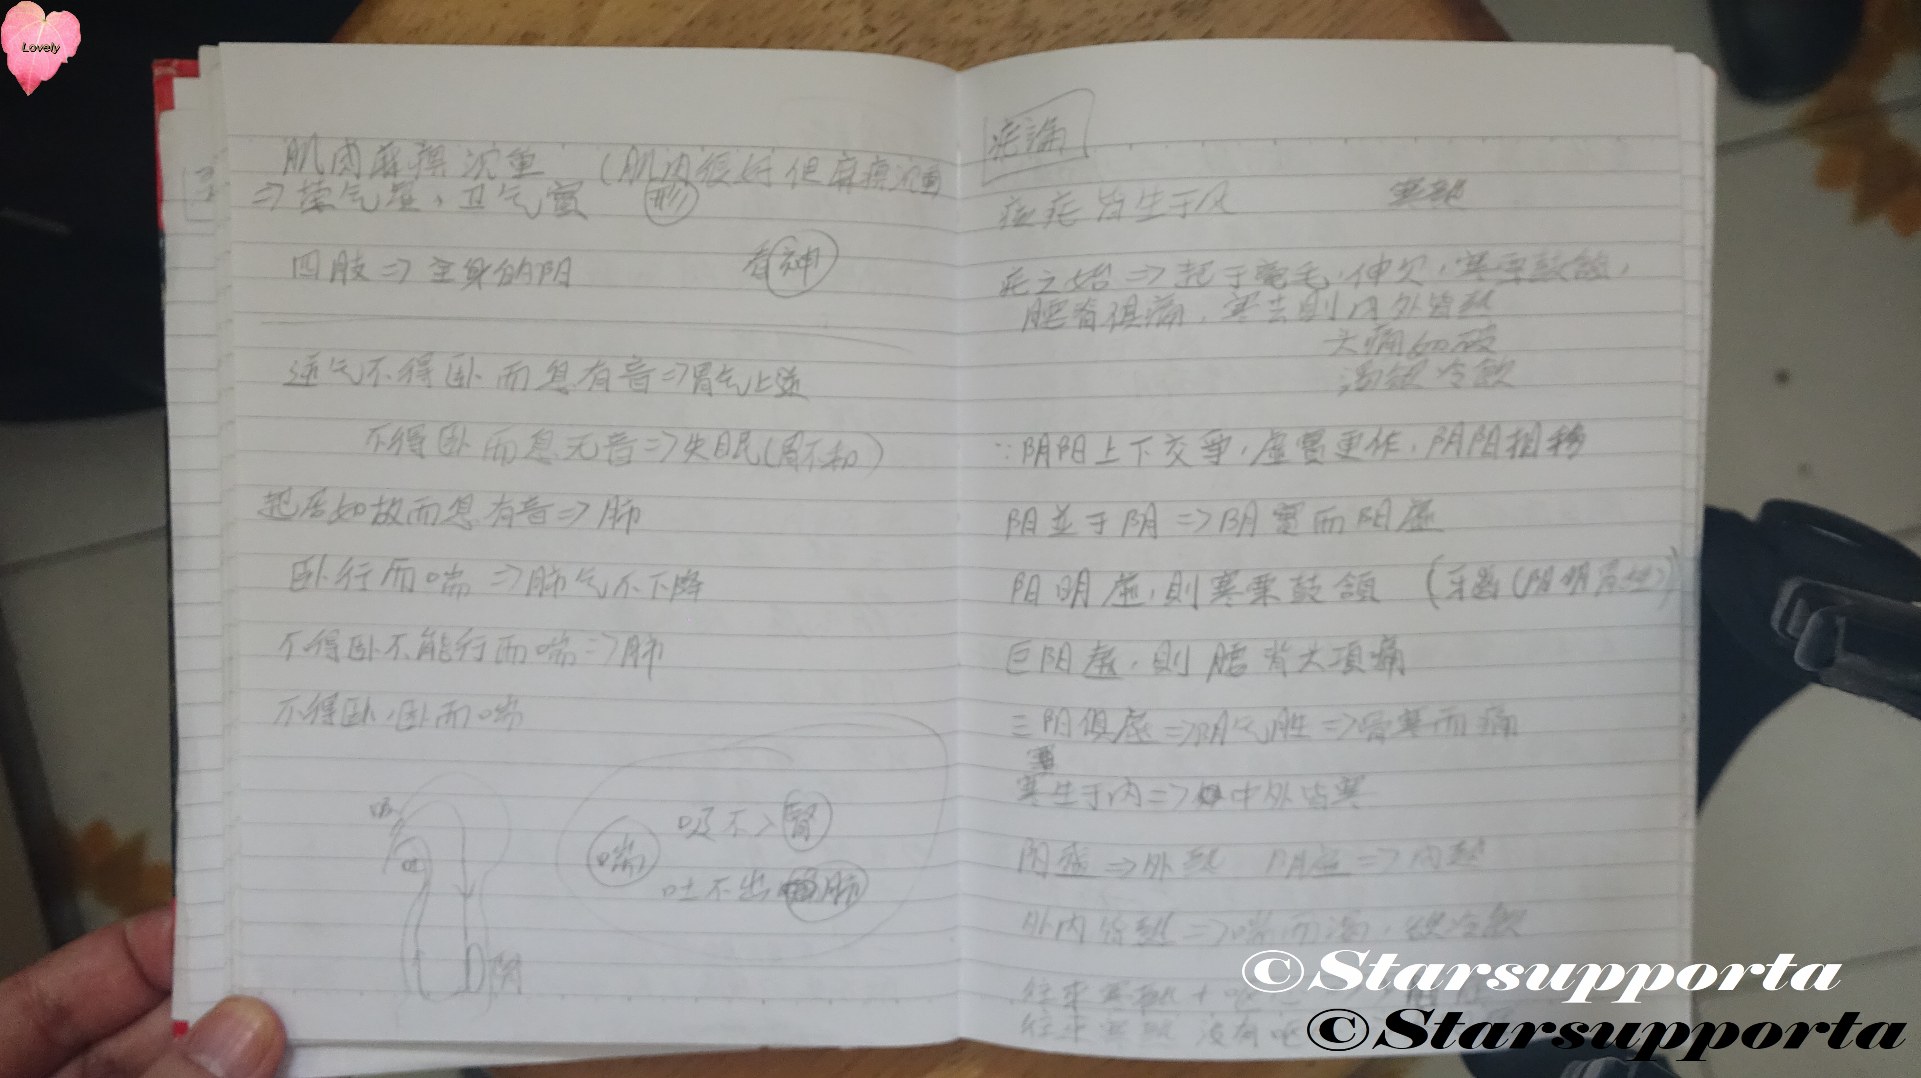 Lovely
肌肉麻痹沉重 (肌肉很好但麻痹沉重
⇒ 营气虚,卫气實 形
四肢 ⇒ 全身的阴 看神
逆气不得卧而息有音 ⇒ 胃气上逆
不得卧而息无音 ⇒ 失眠(胃不和)
起居如故而息有音 ⇒ 肺
卧行而喘 ⇒ 肺气不下降
不得卧不能行而喘 ⇒ 肺
不得卧,卧而喘
吸不入腎
喘
吐不出肺
疟論
痎疟皆生于风
疟之始 ⇒ 起于毫毛,伸欠,寒栗鼓頷,
腰脊俱痛,寒去則内外皆热
头痛如破
渴欲冷飲
∵阴阳上下交爭,虛實更作,阴阳相移
阳並于阴 ⇒ 阴實而阳虛
阳明虛,則寒栗鼓頷 (牙齒(阳明
巨阳虛,則腰背头項痛
三阳俱虛 ⇒ 阴气胜 ⇒ 骨寒而痛
寒生于内 ⇒ 中外皆寒
阳盛 ⇒ 外热 阴虛 ⇒ 内热
外内皆热 ⇒ 喘而渴,欲冷飲
往來寒热 +
往來寒热 没有
©Starsupporta
©Starsupporta